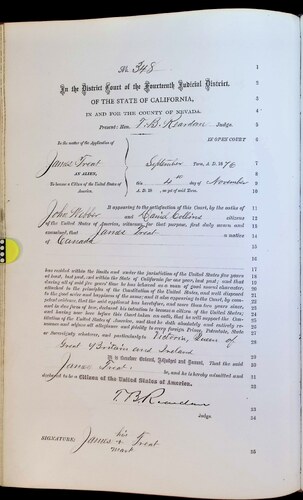 No. 348
In the District Court of the Fourteenth Judicial District,
OF THE STATE OF CALIFORNIA,
IN AND FOR THE COUNTY OF NEVADA.
Present: Hon. T. B. Reardon Judge.
In the matter of the Application of
IN OPEN COURT
James Treat
September Term, A. D. 1876
AN ALIEN,
To become a Citizen of the United States of
this 4th day of November
A. D.
It appearing to the satisfaction of this Court, by the oaths of
John Webber and David Collins citizens
of the United States of America, witnesses for that purpose, first duly sworn and
examined, that James Treat a native
of Canada
has resided within the limits and under the jurisdiction of the United States five years
at least, last past, and within the State of California for one year, last past; and that
during all of said five years' time he has behaved as a man of good moral character,
attached to the principles of the Constitution of the United States, and well disposed
to the good order and happiness of the same; and it also appearing to the Court, by com-
petent evidence, that the said applicant has heretofore, and more than two years since,
and in due form of law, declared his intention to become a citizen of the United States;
and having now here before this Court taken an oath, that he will support the Con-
stitution of the United States of America, and that he doth absolutely and entirely re-
nounce and abjure all allegiance and fidelity to every foreign Prince, Potentate, State
or Sovereignty whatever, and particularly to Victoria, Queen of
Great Britain and Ireland
It is therefore Ordered, Adjudged and Decreed, That the said
James Treat be, and he is hereby admitted and
declared to be a Citizen of the United States of America.
T. B. Reardon
Judge
SIGNATURE: James his x mark Treat